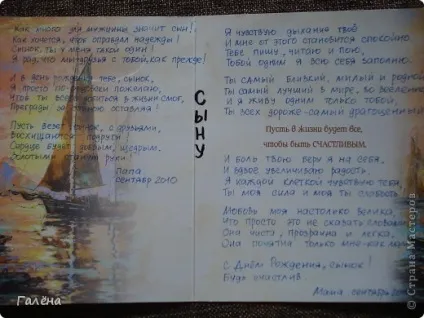 Как много для мужчины значит сын!
Как хочется, чтоб оправдал надежды!
Сынок, ты у меня такой один!
Я рад, что мы дружны с тобой, как прежде!
И в день рожденья тебе, сынок,
Я просто по-мужски пожелаю,
Чтоб ты всего добиться в жизни смог,
Преграды оставляя!
Пусть везёт, сынок, с друзьями,
Восхищаются подруги!
Сердце будет добрым, щедрым.
Золотыми станут руки!
Папа
сентябрь 2010
СЫНУ
Я чувствую дыхание твоё
И мне от этого становится спокойно.
Тебе пишу, читаю и пою,
Тобой одним я всю себя заполню.
Ты самый близкий, милый и родной
Ты самый лучший в мире, во вселенной
И я живу одним только тобой,
Ты всех дороже - самый драгоценный
Пусть в жизни будет все,
чтобы быть СЧАСТЛИВЫМ.
И боль твою беру я на себя,
И вдвое увеличиваю радость.
Я каждой клеткой чувствую тебя,
Ты моя сила и моя ты слабость.
Любовь моя настолько велика,
Что просто это не сказать словами
Она чиста, прозрачна и легка,
Она понятна только мне - как маме
С Днём Рождения, сынок!
Будь счастлив
Мама сентябрь
Галёна
© Страна Мастеров